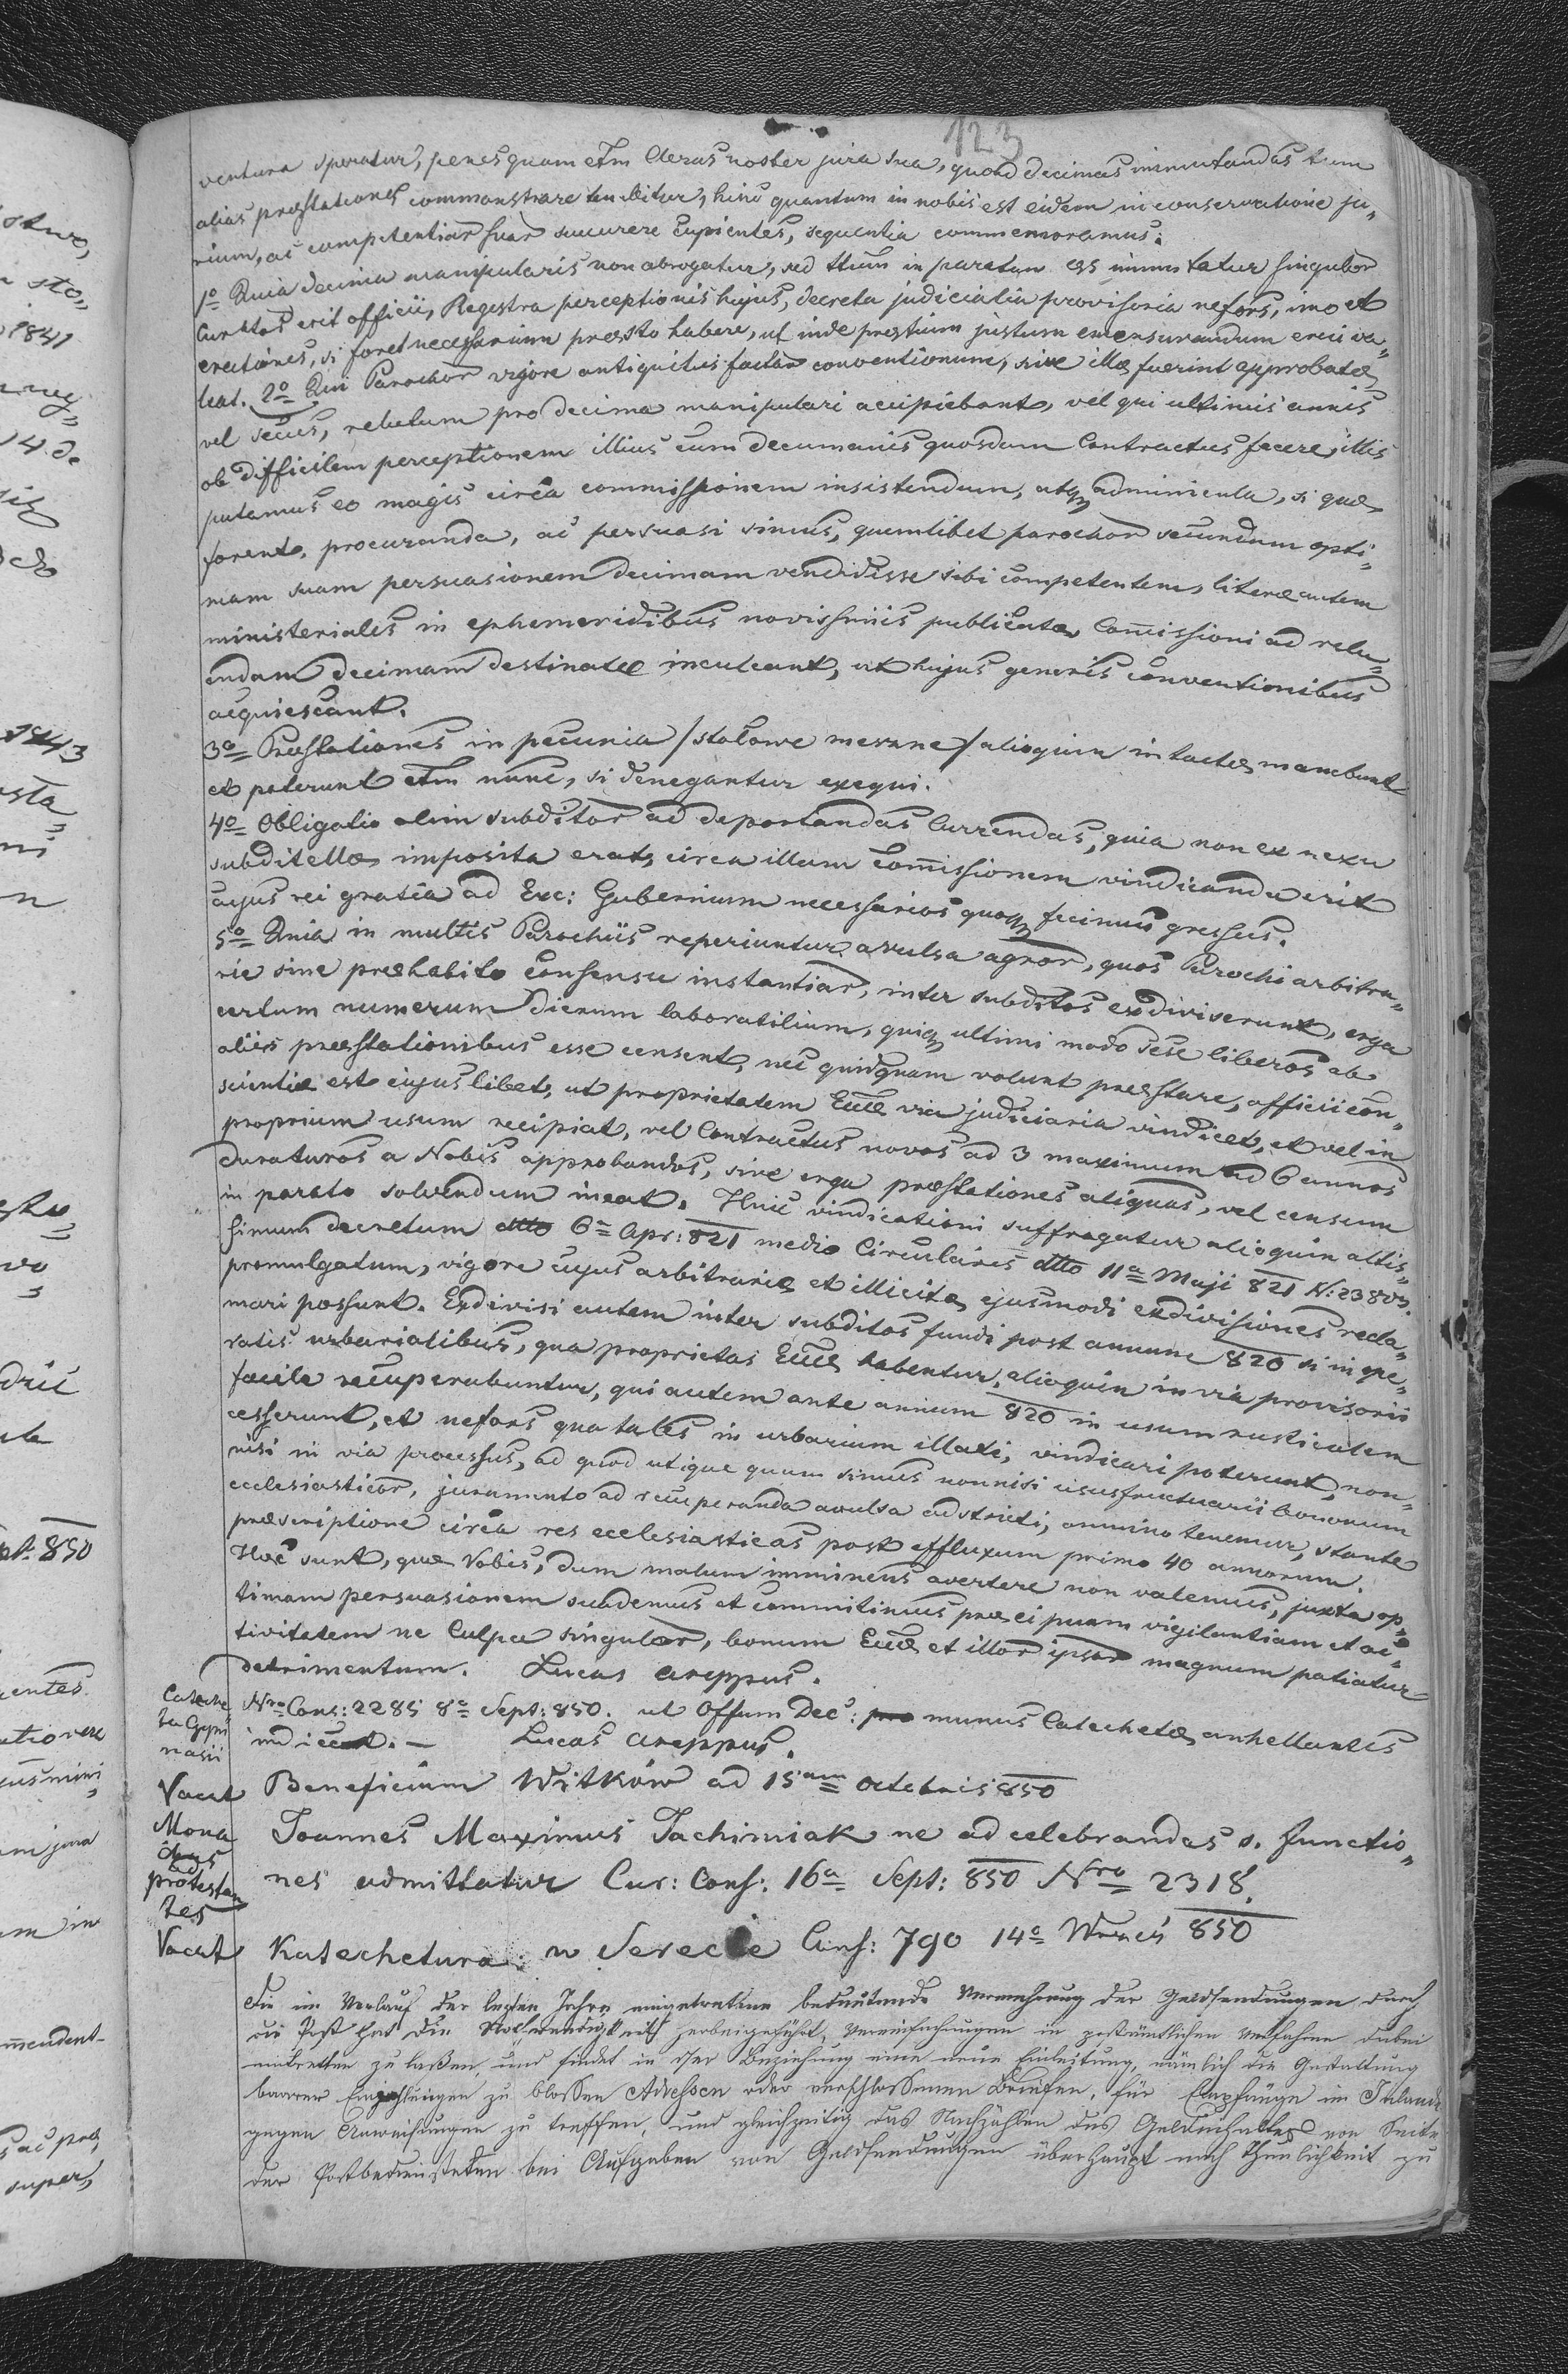 123
ventura speratur, penes quam etm Clerus noster jura sua, quoad decimas immutandas tum
alias praestationes commonstrare tenebitur, hinc quantum in nobis est eidem in conservatione ju„
rium, ac competentiar suar succurere cupientes, sequentia commemoramus:
1o Quia decima manipularis non abrogatur, sed ttum in paratum aes immutatur singulor
Curator erit officii, Regestra perceptionis hujus, decreta judicialia provisoria nefors, imo et
erectiones, si foret necessarium praesto habere, ut inde pretium justum emensurandum erui va„
leat. 2o Qui Parochor vigore antiquitus factar conventionum, sive illae fuerint approbatae,
vel secus, relutum pro decima manipulari accipiebant, vel qui ultimis annis
ob difficilem perceptionem illius cum decumanis quosdam Contractus fecere, illis
putamus eo magis circa commissionem insistendum, atq adminicula, si quae
forent, procuranda, ac persuasi simus, quemlibet parochor secundum opti„
mam suam persuasionem decimam vendidisse sibi competentem, literae autem
ministeriales in ephemeridibus novissimis publicatae, Comissioni ad relu„
endam decimam destinatae inculcant, ut hujus generis conventionibus
acquiescant.
3o Praestationes in pecunia /stołowe meszne/ alioquin intactae manebunt
et poterunt etm nunc, si denegantur exequi.
4o Obligatio olim subditor ad deportandas Currendas, quia non ex nexu
subditellae imposita erat, circa illam Comissionem vindicanda erit
cujus rei gratia ad Exc: Gubernium necessarios quoq fecimus gressus.
5o Quia in multis Parochiis reperiuntur avulsa agror, quos Parochi arbitra„
rie sine praehabito Consensu instantiar, inter subditos exdiviserunt, erga
certum numerum dierum laboratilium, quiq ultimi modo sese liberos ab
aliis praestationibus esse censent, nec quidquam volunt praestare, officii con„
scientiae est cujuslibet, ut proprietatem Eccae via judiciaria vindicet, et vel in
proprium usum recipiat, vel Contractus novos ad 3 maximum ad 6 annos
duraturos a Nobis approbandos, sive erga praestationes aliquas, vel censum
in parato solvendum ineat. Huic vindicationi suffragatur alioquin altis„
simum decretum dtto 6a Apr: 821 medio Circularis dtto 11a Maji 821 N: 23803.
promulgatum, vigore cujus arbitrariae et illicitae ejusmodi exdivisiones recla„
mari possunt. Exdivisi autem inter subditos fundi post annum 820 si in ope„
ratis urbarialibus, qua proprietas Eccae habentur, alioquin in via provisorii
facile recuperabuntur, qui autem ante annum 820 in usum rusticalem
cesserunt, et nefors qua tales in urbarium illati, vindicari poterunt, non„
nisi in via processus, ad quod utique quum simus nonnisi ususfructuarii bonorum
ecclesiasticor, juramento ad recuperanda avulsa adstricti, omnino tenemur, stante
praescriptione circa res ecclesiasticas post effluxum primo 40 annorum.
Haec sunt, quae Vobis, dum malum imminens avertere non valemus, juxta op„
timam persuasionem suademus et committimus praecipuam vigilantiam et ac„
tivitatem ne Culpa singulor, bonum Eccae et illor ipsor magnum patiatur
detrimentum. Lucas mppus.
Cateche
ta Gym
nasii
Nro Cons: 2285 8a Sept: 850. ut Offum Dec: munus Catechetae anhellantes
indicet. – Lucas mppus.
Vacat Beneficium Witków ad 15am octobris 850
Mona
chus
ad
protestan
tes
Joannes Maximus Jachimiak ne ad celebrandas s. functio„
nes admittatur Cur: Cons: 16a Sept: 850 Nro 2318.
Vacat Katechetura w Serecie Cons: 790 14a Wrześ 850
Die im Verlauf der lezten Jahre eingetretene bedeutende Vermehrung der Geldsendungen durch
die Post hat die Nothwendigkeit herbeigeführt, Vereinfachungen in postämtlichen Verfahren dabei
eintretten zu laßen, und findet in dser Beziehung eine neue Einleitung, nämlich die Gestattung
baarer Einzahlungen zu blossen Adressen oder verschlossenen Briefen, für Empfänge im Inlande
gegen Anweisungen zu treffen, und gleichzeitig das Nachzählen des Geldinhaltes von Seite
der Postbediensteten bei Aufgaben von Geldsendungen überhaupt nach Thunlichkeit zu